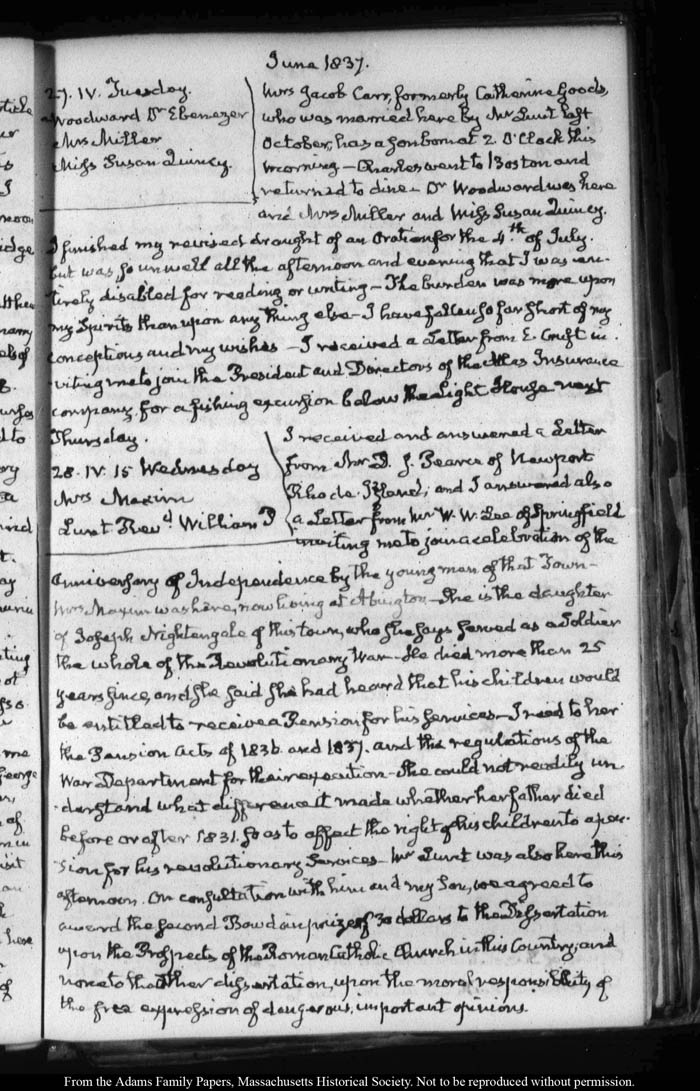 June 1837.
27. IV. Tuesday.
Woodward Dr Ebenezer
Mrs Miller
Miss Susan Quincy.
Mrs Jacob Carr, formerly Catherine Goods,
who was married here by Mr Lunt last
October, has a son born at 2. O'Clock this
morning — Charles went to Boston and
returned to dine — Dr Woodward was here
and Mrs Miller and Miss Susan Quincy.
I finished my revised draught of an Oration for the 4th of July.
but was so unwell all the afternoon and evening that I was en-
tirely disabled for reading or writing — The burden was more upon
my Spirits than upon any thing else — I have fallen so far short of my
conceptions and my wishes — I received a Letter from E. Cruft in-
viting me to join the President and Directors of the Atlas Insurance
company, for a fishing excursion below the Light House next
Thursday.
28. IV. 15 Wednesday
Mrs Maxim
Lunt Revd. William P
I received and answered a Letter
from Mr D. J. Pearce of Newport
Rhode Island; and I answered also
a Letter from Mr W. W. Lee of Springfield
inviting me to join a celebration of the
anniversary of Independence by the young men of that Town —
Mrs Maxim was here, now living at Abington — She is the daughter
of Joseph Nightengale of this town, who she says served as a Soldier
the whole of the Revolutionary War — He died more than 25
years since, and she said she had heard that his children would
be entitled to receive a Pension for his services — I read to her
the Pension Acts of 1836 and 1837. and the regulations of the
War Department for their execution — She could not readily un-
derstand what difference it made whether her father died
before or after 1831. so as to affect the right of his children to a pen-
sion for his revolutionary Services — Mr Lunt was also here this
afternoon. On consultation with him and my Son, we agreed to
award the second Bowdoin prize of 30 dollars to the Dissertation
upon the Prospects of the Roman Catholic Church in this Country, and
none to the other dissertation, upon the moral responsibility of
the free expression of dangerous, important opinions.
From the Adams Family Papers, Massachusetts Historical Society. Not to be reproduced without permission.